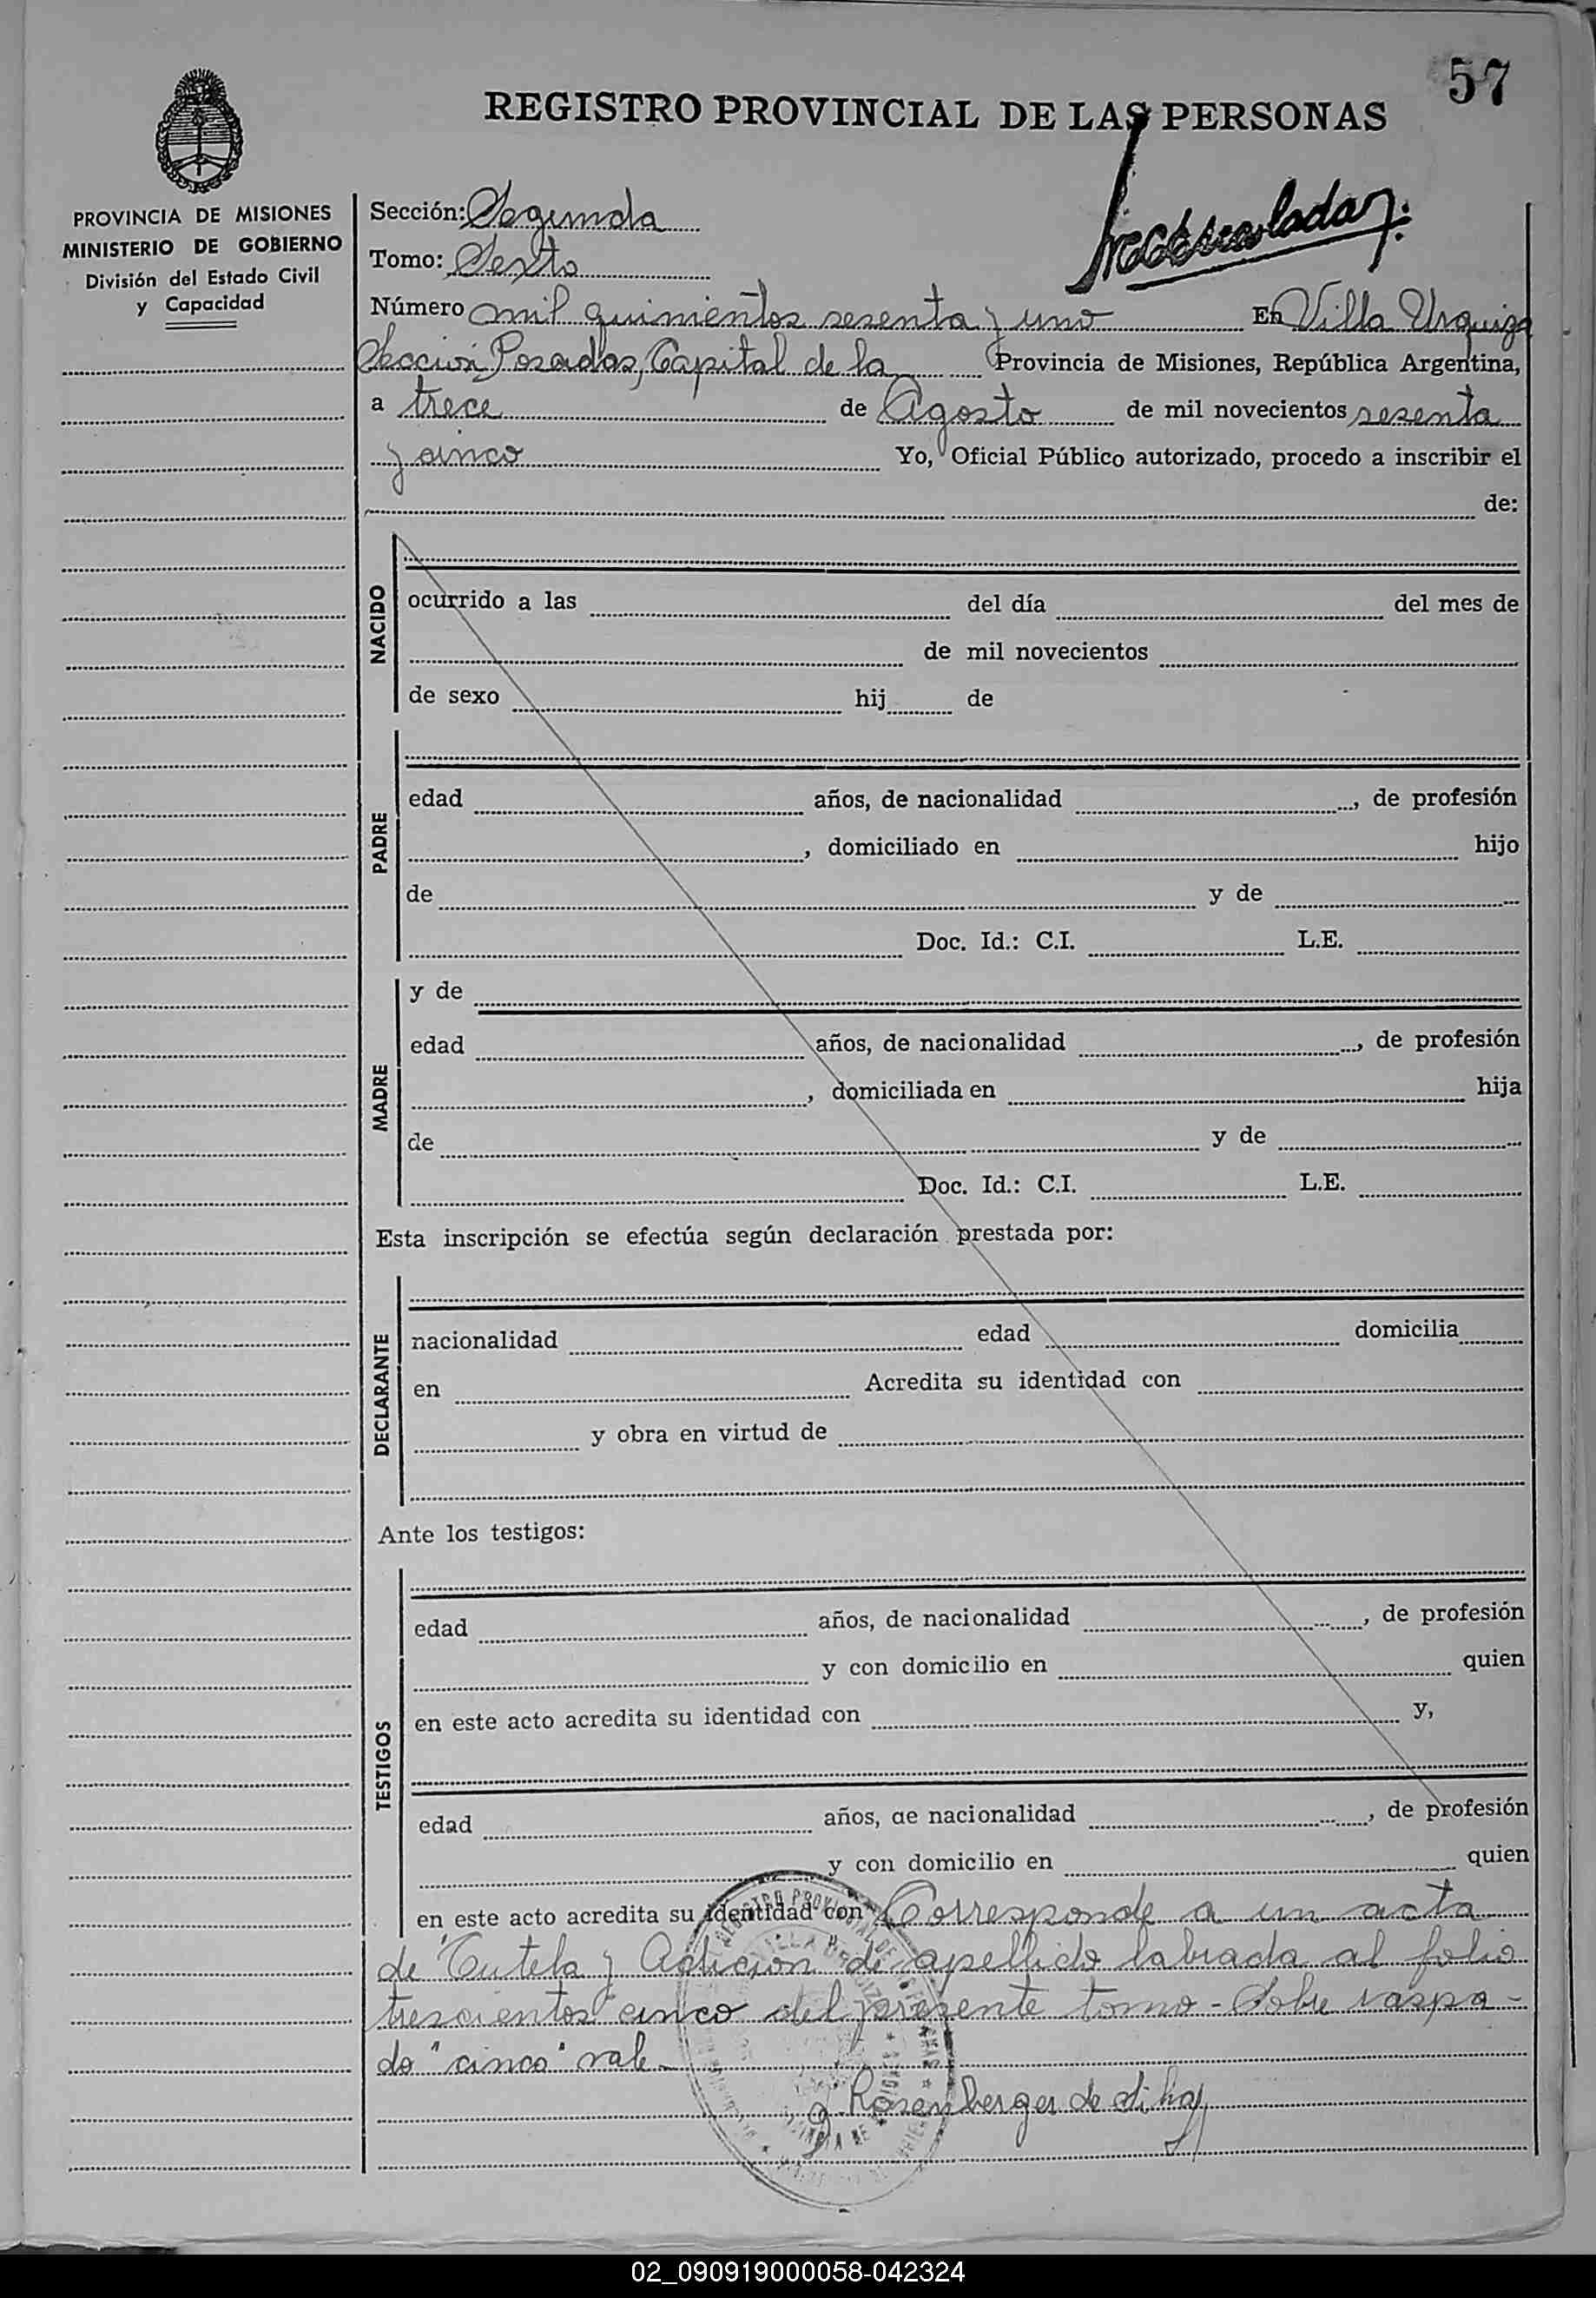 57
REGISTRO PROVINCIAL DE LAS PERSONAS
PROVINCIA DE MISIONES
MINISTERIO DE GOBIERNO
División del Estado Civil
y Capacidad
Sección: Segunda
Tomo: Sexto
Número mil quinientos sesenta y uno En Villa Urquiza
Sección Posadas, Capital de la Provincia de Misiones, República Argentina,
a trece de Agosto de mil novecientos sesenta
y cinco Yo, Oficial Público autorizado, procedo a inscribir el
de:
NACIDO
ocurrido a las del día del mes de
de mil novecientos
de sexo hij de
PADRE
edad años, de nacionalidad , de profesión
, domiciliado en hijo
de y de
Doc. Id.: C.I. L.E.
MADRE
y de
edad años, de nacionalidad , de profesión
, domiciliada en hija
de y de
Doc. Id.: C.I. L.E.
Esta inscripción se efectúa según declaración prestada por:
DECLARANTE
nacionalidad edad domicilia
en Acredita su identidad con
y obra en virtud de
Ante los testigos:
TESTIGOS
edad años, de nacionalidad , de profesión
y con domicilio en quien
en este acto acredita su identidad con y,
edad años, de nacionalidad , de profesión
y con domicilio en quien
en este acto acredita su identidad con Corresponde a un acta
de "Tutela y Adición de apellido labrada al folio
trescientos cinco del presente tomo - Sobre raspa-
do "cinco" vale.-
Rosenberger de
02_090919000058-042324